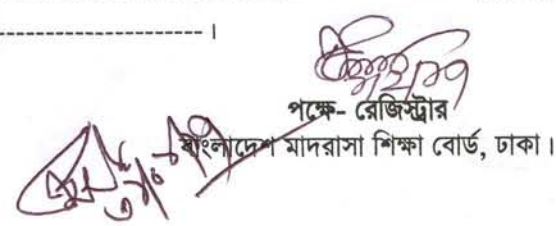 -------------------------------------------- ।
পক্ষে- রেজিস্ট্রার
বাংলাদেশ মাদরাসা শিক্ষা বোর্ড, ঢাকা।